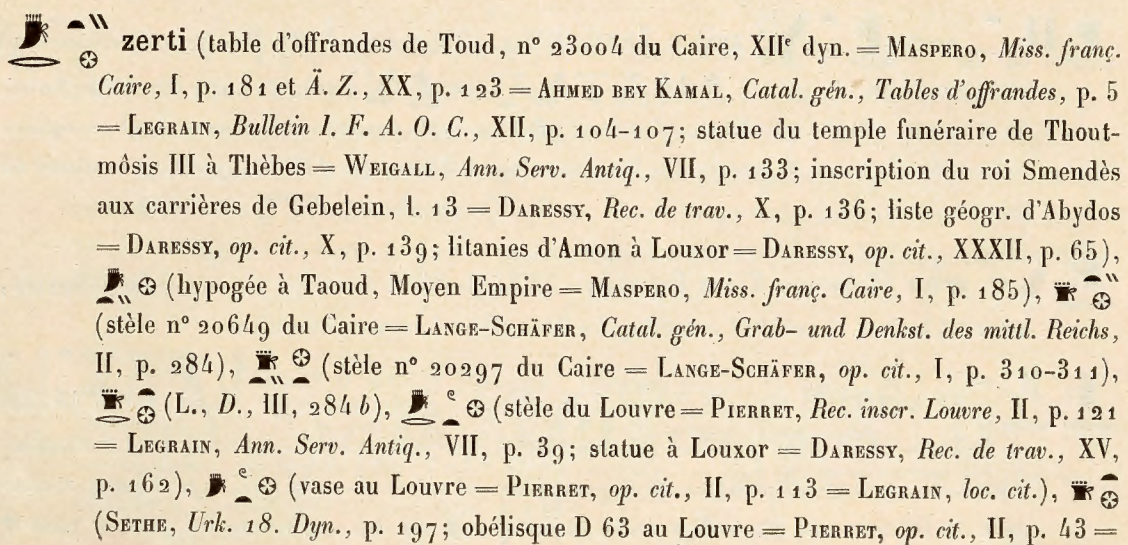 zerti (table d'offrandes de Toud, n° 23004 du Caire, XIIᵉ dyn. = MASPERO, Miss. franç.
Caire, I, p. 181 et Ä. Z., XX, p. 123 = AHMED BEY KAMAL, Catal. gén., Tables d'offrandes, p. 5
= LEGRAIN, Bulletin I. F. A. O. C., XII, p. 104-107; statue du temple funéraire de Thout-
môsis III à Thèbes = WEIGALL, Ann. Serv. Antiq., VII, p. 133; inscription du roi Smendès
aux carrières de Gebelein, l. 13 = DARESSY, Rec. de trav., X, p. 136; liste géogr. d'Abydos
= DARESSY, op. cit., X, p. 139; litanies d'Amon à Louxor = DARESSY, op. cit., XXXII, p. 65),
(hypogée à Taoud, Moyen Empire = MASPERO, Miss. franç. Caire, I, p. 185),
(stèle n° 20649 du Caire = LANGE-SCHÄFER, Catal. gén., Grab- und Denkst. des mittl. Reichs,
II, p. 284), (stèle n° 20297 du Caire = LANGE-SCHÄFER, op. cit., I, p. 310-311),
(L., D., III, 284 b), (stèle du Louvre = PIERRET, Rec. inscr. Louvre, II, p. 121
= LEGRAIN, Ann. Serv. Antiq., VII, p. 39; statue à Louxor = DARESSY, Rec. de trav., XV,
p. 162), (vase au Louvre = PIERRET, op. cit., II, p. 113 = LEGRAIN, loc. cit.),
(SETHE, Urk. 18. Dyn., p. 197; obélisque D 63 au Louvre = PIERRET, op. cit., II, p. 43 =